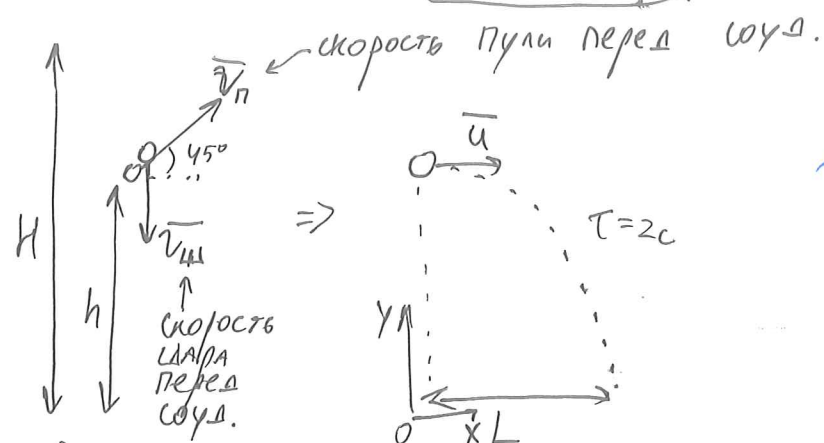 скорость пули перед соуд.
v̅п
45°
H
h
v̅ш
скорость
шара
перед
соуд.
=>
u̅
τ=2с
Y
O
X
L